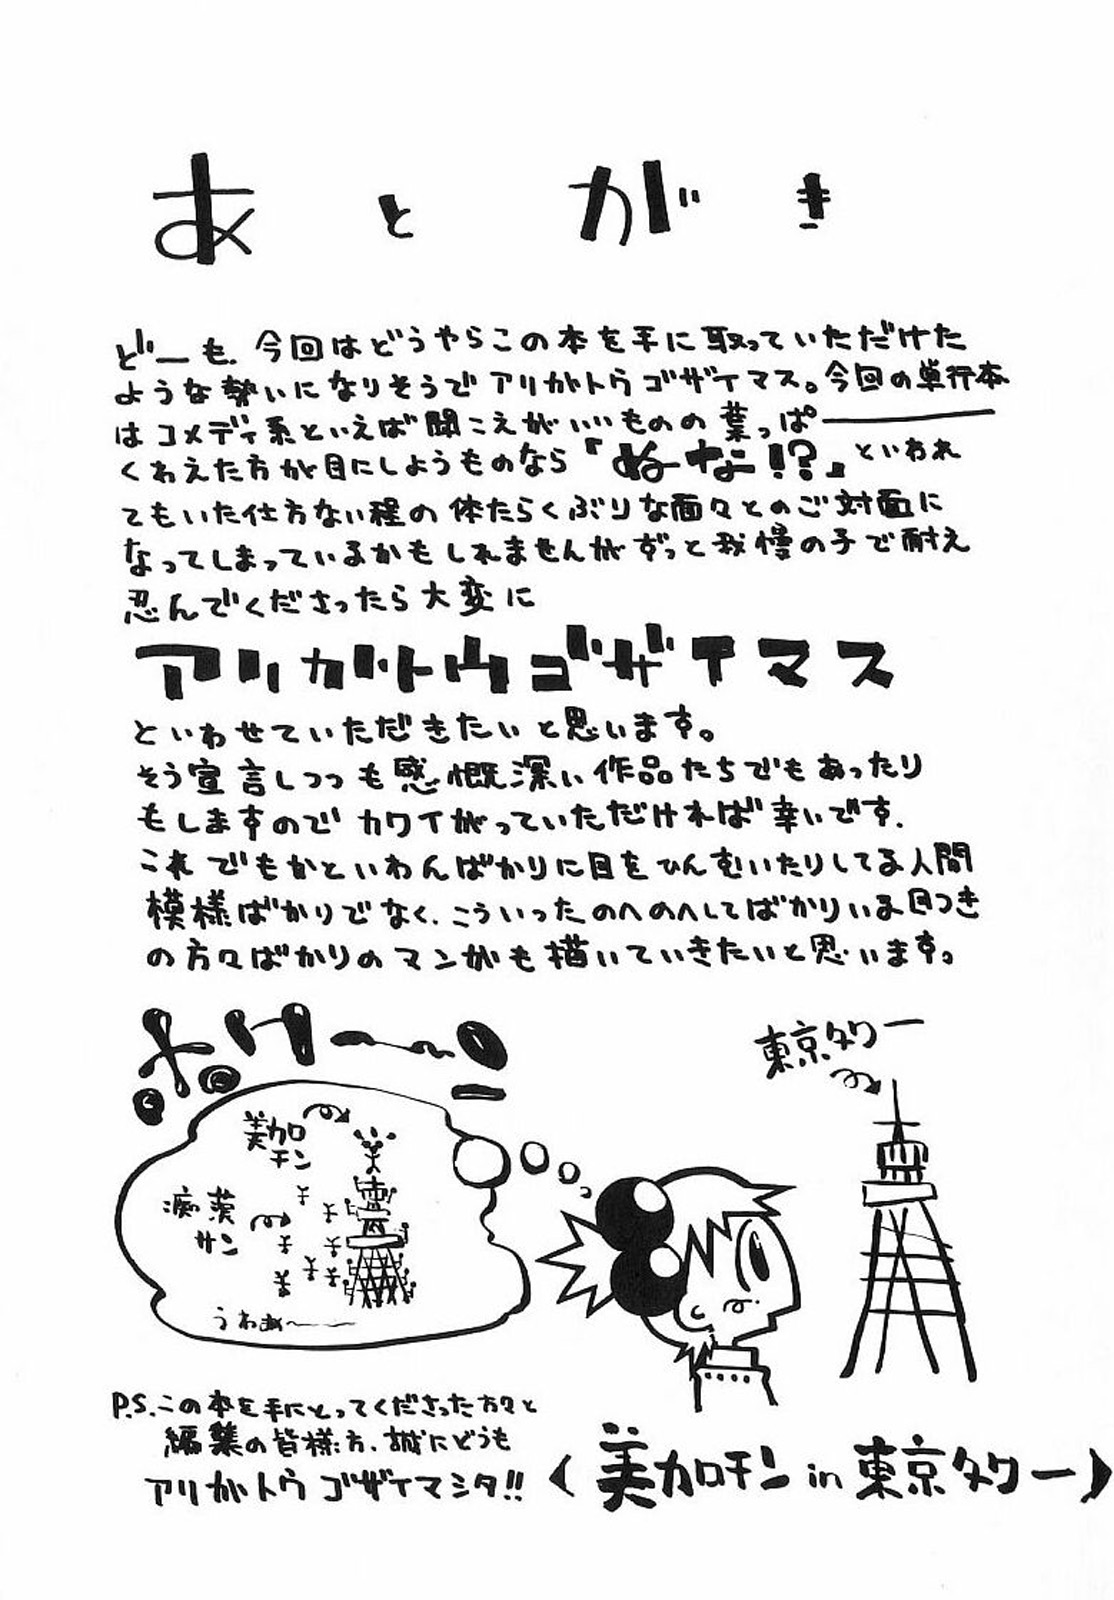 あとがき
どーも、今回はどうやらこの本を手に取っていただけた
ような勢いになりそうでアリガトウゴザイマス。今回の単行本
はコメディ系といえば聞こえがいいものの葉っぱ――――
くわえた方が目にしようものなら『ぬーな!?』といわれ
てもいた仕方ない程の体たらくぶりな面々とのご対面に
なってしまっているかもしれませんがずっと我慢の子で耐え
忍んでくださったら大変に
アリガトウゴザイマス
といわせていただきたいと思います。
そう宣言しつつも感慨深い作品たちでもあったり
もしますのでカワイがっていただければ幸いです.
これでもかといわんばかりに目をひんむいたりしてる人間
模様ばかりでなく、こういったのへのへしてばかりいる目つき
の方々ばかりのマンガも描いていきたいと思います。
ポワーーン
東京タワー
美カロ
チン
痴漢
サン
うわぁ〜――
P.S.この本を手にとってくださった方々と
編集の皆様方、誠にどうも
アリガトウゴザイマシタ!!
〈美カロチン in 東京タワー〉